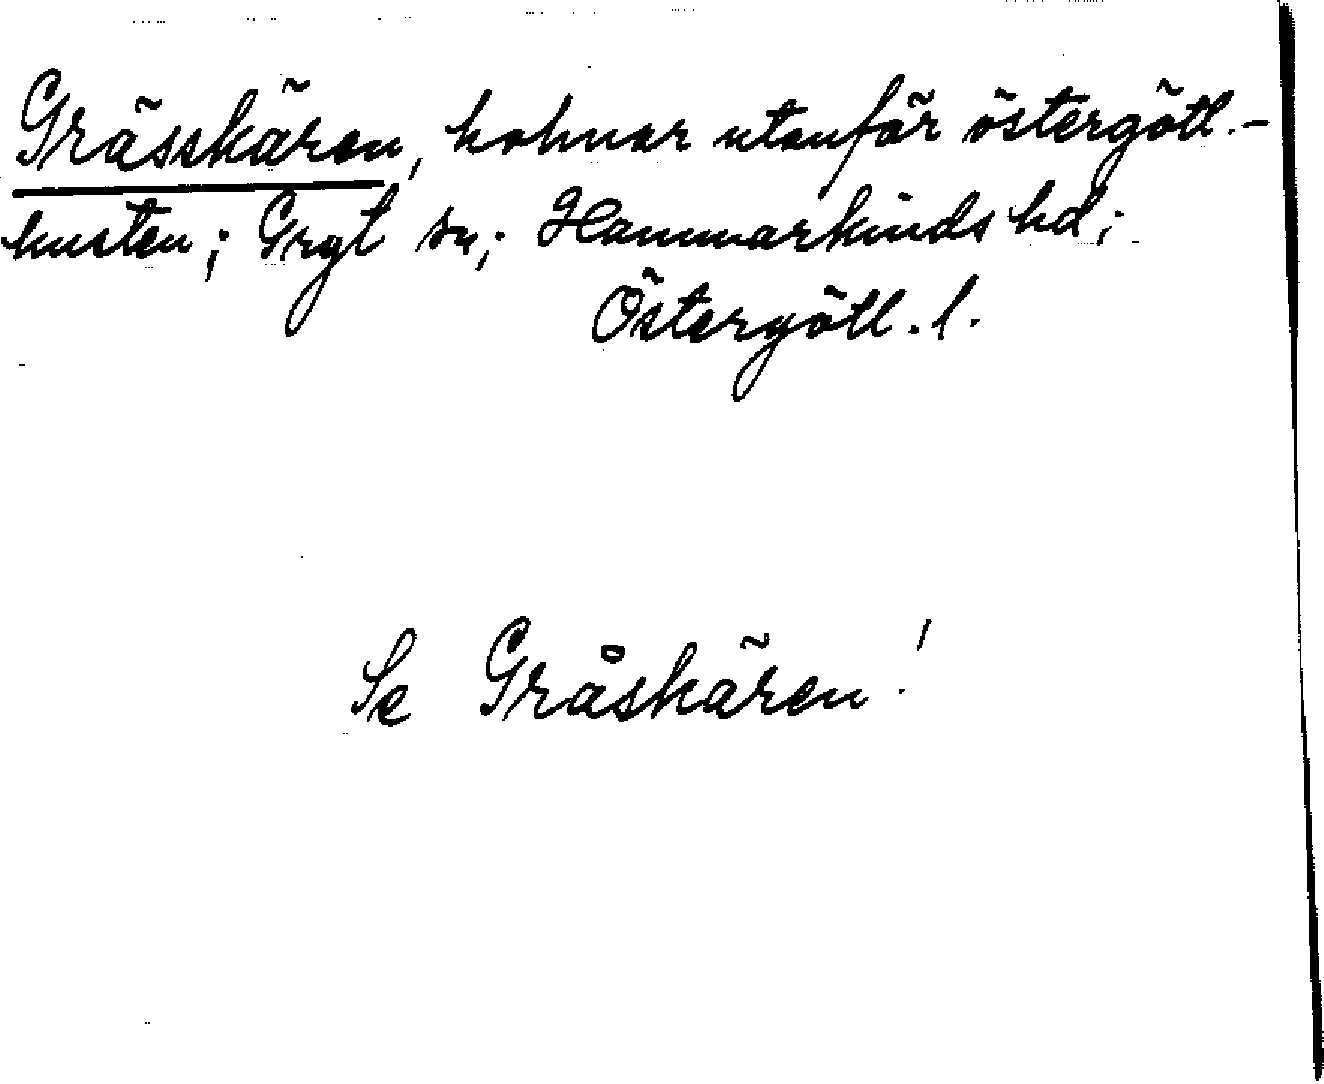 Grässkären, holmar utanför östergötl.-
kusten; Gryt sn; Hammarkinds hd;
Östergötl. l.
Se Gråskären!